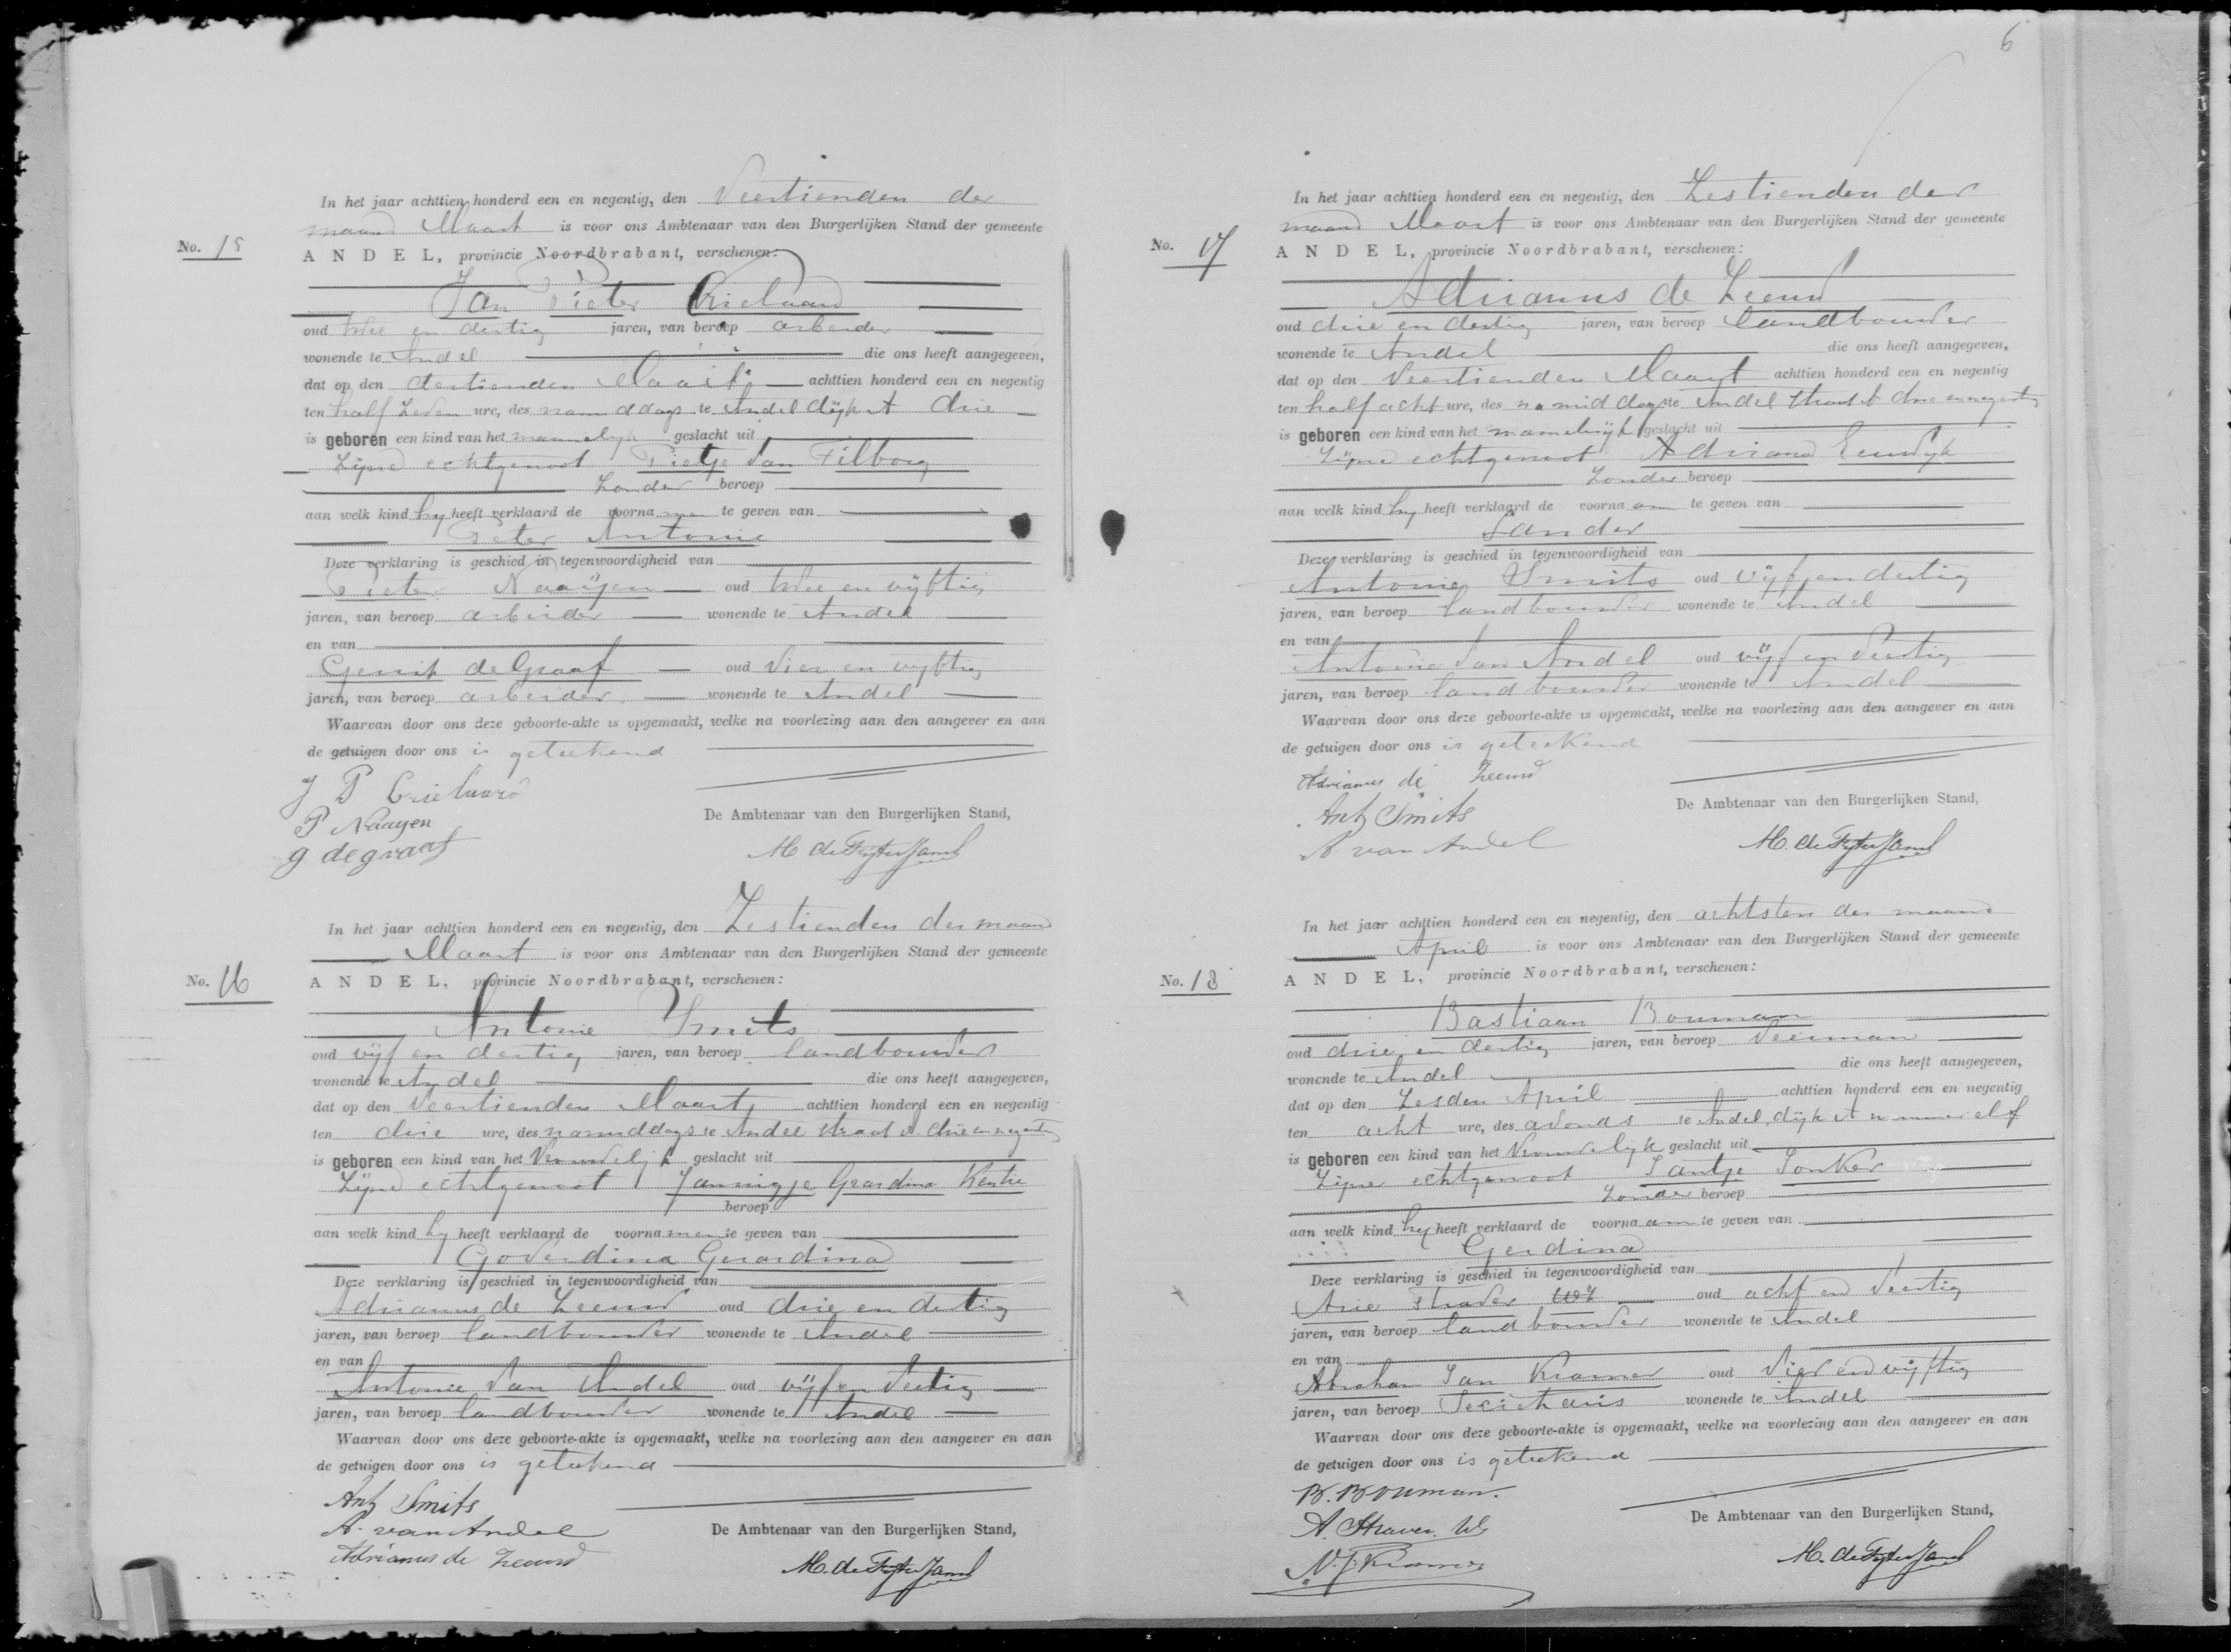 In het jaar achttien honderd een en negentig, den Veertienden der
maand Maart is voor ons Ambtenaar van den Burgerlijken Stand der gemeente
No. 15
ANDEL, provincie Noordbrabant, verschenen:
Jan Pieter Crielaard
oud twee en dertig jaren, van beroep arbeider
wonende te Andel die ons heeft aangegeven,
dat op den dertienden Maart achttien honderd een en negentig
ten half zeven ure, des namiddags te Andel dijk A drie
is geboren een kind van het mannelijk geslacht uit
zijne echtgenoot Pietje van Tilborg
zonder beroep
aan welk kind hij heeft verklaard de voornamen te geven van
Peter Antonie
Deze verklaring is geschied in tegenwoordigheid van
Pieter Naaijen oud twee en vijftig
jaren, van beroep arbeider wonende te Andel
en van
Gerrit de Graaf oud vier en vijftig
jaren, van beroep arbeider wonende te Andel
Waarvan door ons deze geboorte-akte is opgemaakt, welke na voorlezing aan den aangever en aan
de getuigen door ons is geteekend
J P Crielaard
P Naayen
g de graaf
De Ambtenaar van den Burgerlijken Stand,
In het jaar achttien honderd een en negentig, den Zestienden der maand
Maart is voor ons Ambtenaar van den Burgerlijken Stand der gemeente
No. 16
ANDEL, provincie Noordbrabant, verschenen:
Antonie Smits
oud vijf en dertig jaren, van beroep landbouwer
wonende te Andel die ons heeft aangegeven,
dat op den Veertienden Maart achttien honderd een en negentig
ten drie ure, des namiddags te Andel straat A drie en negentig
is geboren een kind van het Vrouwelijk geslacht uit
zijne echtgenoot Jannigje Gerardina Kentie
beroep
aan welk kind hij heeft verklaard de voornamen te geven van
Goverdina Gerardina
Deze verklaring is geschied in tegenwoordigheid van
Adrianus de Zeeuw oud drie en dertig
jaren, van beroep landbouwer wonende te Andel
en van
Antonie van Andel oud vijf en veertig
jaren, van beroep landbouwer wonende te Andel
Waarvan door ons deze geboorte-akte is opgemaakt, welke na voorlezing aan den aangever en aan
de getuigen door ons is geteekend
Ant Smits
A. van Andel
Adrianus de Zeeuw
De Ambtenaar van den Burgerlijken Stand,
6
In het jaar achttien honderd een en negentig, den Zestienden der
maand Maart is voor ons Ambtenaar van den Burgerlijken Stand der gemeente
No. 17
ANDEL, provincie Noordbrabant, verschenen:
Adrianus de Zeeuw
oud drie en dertig jaren, van beroep landbouwer
wonende te Andel die ons heeft aangegeven,
dat op den Veertienden Maart achttien honderd een en negentig
ten half acht ure, des namiddags te Andel straat A drie en negentig
is geboren een kind van het mannelijk geslacht uit
zijne echtgenoot Adriana
zonder beroep
aan welk kind hij heeft verklaard de voornaam te geven van
Sander
Deze verklaring is geschied in tegenwoordigheid van
Antonie Smits oud vijf en dertig
jaren, van beroep landbouwer wonende te Andel
en van
Antonie van Andel oud vijf en veertig
jaren, van beroep landbouwer wonende te Andel
Waarvan door ons deze geboorte-akte is opgemaakt, welke na voorlezing aan den aangever en aan
de getuigen door ons is geteekend
Adrianus de Zeeuw
Ant Smits
A. van Andel
De Ambtenaar van den Burgerlijken Stand,
In het jaar achttien honderd een en negentig, den achtsten der maand
April is voor ons Ambtenaar van den Burgerlijken Stand der gemeente
No. 18
ANDEL, provincie Noordbrabant, verschenen:
Bastiaan Bouman
oud drie en dertig jaren, van beroep Veerman
wonende te Andel die ons heeft aangegeven,
dat op den Zesden April achttien honderd een en negentig
ten acht ure, des avonds te Andel, dijk A nummer elf
is geboren een kind van het Vrouwelijk geslacht uit
zijne echtgenoot Jantje Jonker
zonder beroep
aan welk kind hij heeft verklaard de voornaam te geven van
Gerdina
Deze verklaring is geschied in tegenwoordigheid van
Arie Straver Wz oud acht en veertig
jaren, van beroep landbouwer wonende te Andel
en van
Abraham Jan Kramer oud vier en vijftig
jaren, van beroep Secretaris wonende te Andel
Waarvan door ons deze geboorte-akte is opgemaakt, welke na voorlezing aan den aangever en aan
de getuigen door ons is geteekend
B. Bouman.
A. Straver. Wz
A. J. Kramer
De Ambtenaar van den Burgerlijken Stand,